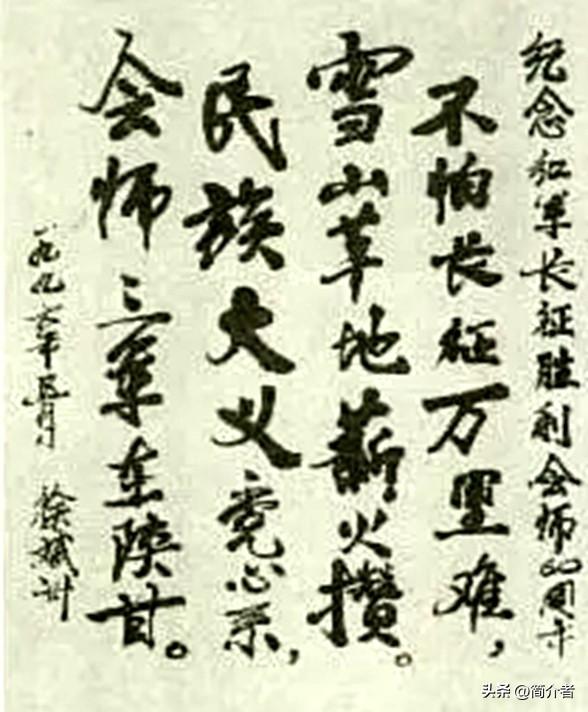 纪念红军长征胜利会师60周年
不怕长征万里难，
雪山草地薪火攒。
民族大义党心系，
会师三军在陕甘。
一九九六年五月 徐斌洲
头条 @简介者